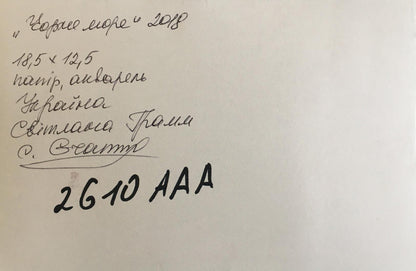 „Чорне море" 2018
18,5 × 12,5
папір, акварель
Україна
Світлана Грамм
с.
2610 AAA